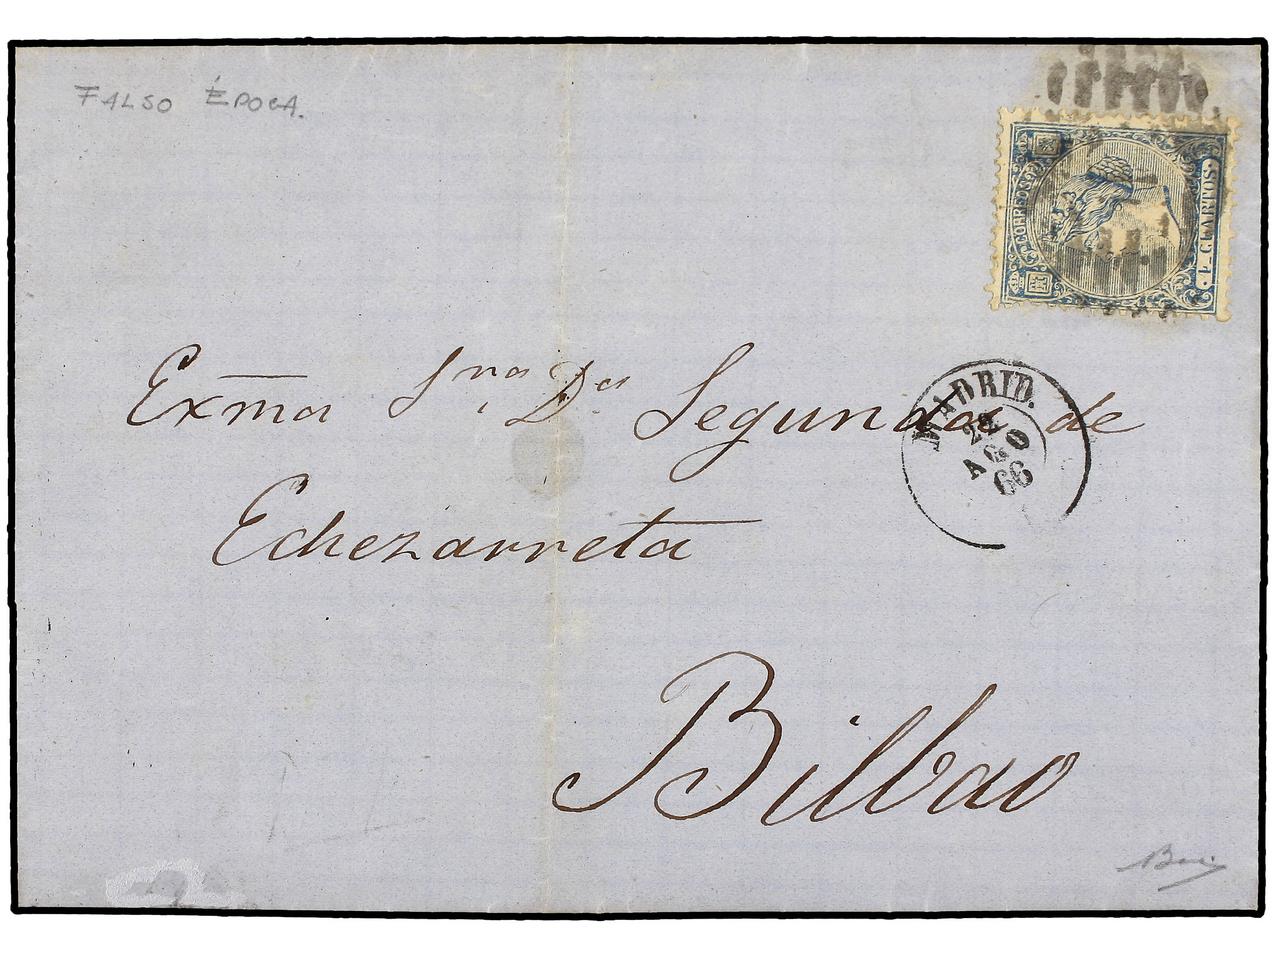 FALSO ÉPOCA.
CORREOS
4 CUARTOS.
MADRID.
22
AGO
66
Exma Sra Da Segunda de
Echezarreta
Bilbao